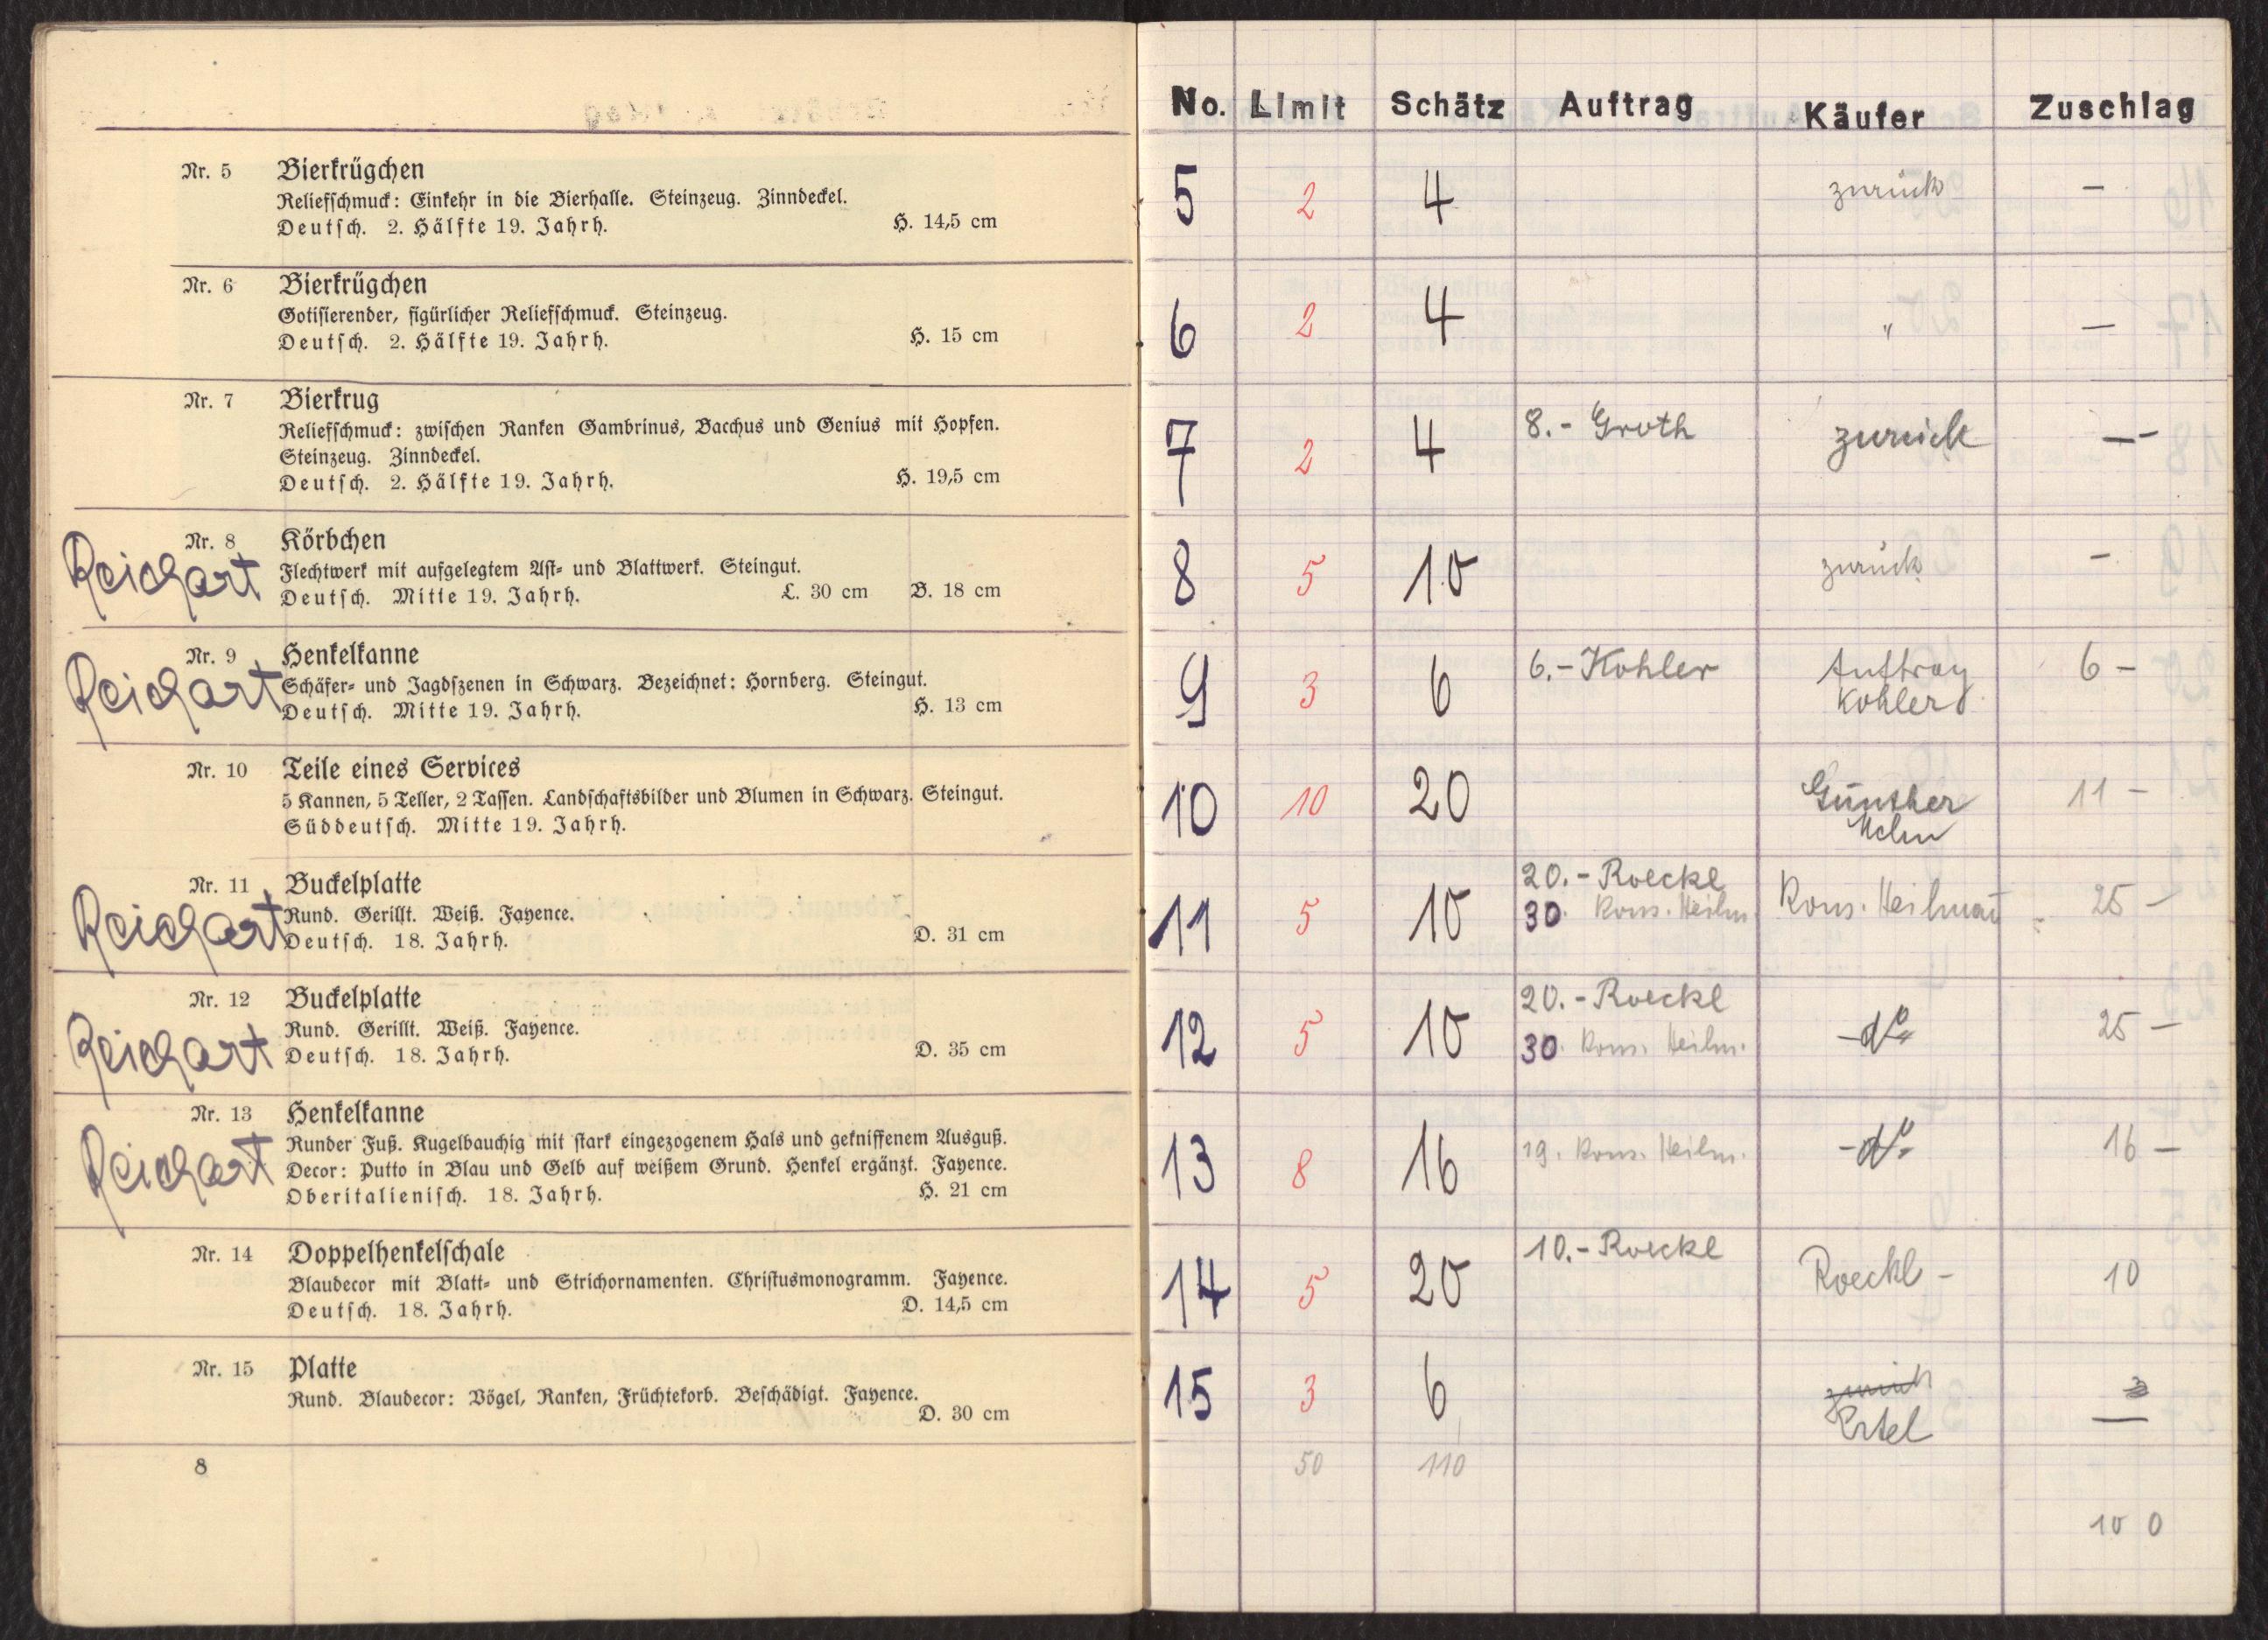 Nr. 5 Bierkrügchen
Reliefschmuck: Einkehr in die Bierhalle. Steinzeug. Zinndeckel.
Deutsch. 2. Hälfte 19. Jahrh. H. 14,5 cm
Nr. 6 Bierkrügchen
Gotisierender, figürlicher Reliefschmuck. Steinzeug.
Deutsch. 2. Hälfte 19. Jahrh. H. 15 cm
Nr. 7 Bierkrug
Reliefschmuck: zwischen Ranken Gambrinus, Bacchus und Genius mit Hopfen.
Steinzeug. Zinndeckel.
Deutsch. 2. Hälfte 19. Jahrh. H. 19,5 cm
Reichart
Nr. 8 Körbchen
Flechtwerk mit aufgelegtem Ast- und Blattwerk. Steingut.
Deutsch. Mitte 19. Jahrh. L. 30 cm B. 18 cm
Reichart
Nr. 9 Henkelkanne
Schäfer- und Jagdszenen in Schwarz. Bezeichnet: Hornberg. Steingut.
Deutsch. Mitte 19. Jahrh. H. 13 cm
Nr. 10 Teile eines Services
5 Kannen, 5 Teller, 2 Tassen. Landschaftsbilder und Blumen in Schwarz. Steingut.
Süddeutsch. Mitte 19. Jahrh.
Reichart
Nr. 11 Buckelplatte
Rund. Gerillt. Weiß. Fayence.
Deutsch. 18. Jahrh. D. 31 cm
Reichart
Nr. 12 Buckelplatte
Rund. Gerillt. Weiß. Fayence.
Deutsch. 18. Jahrh. D. 35 cm
Reichart
Nr. 13 Henkelkanne
Runder Fuß. Kugelbauchig mit stark eingezogenem Hals und gekniffenem Ausguß.
Decor: Putto in Blau und Gelb auf weißem Grund. Henkel ergänzt. Fayence.
Oberitalienisch. 18. Jahrh. H. 21 cm
Nr. 14 Doppelhenkelschale
Blaudecor mit Blatt- und Strichornamenten. Christusmonogramm. Fayence.
Deutsch. 18. Jahrh. D. 14,5 cm
Nr. 15 Platte
Rund. Blaudecor: Vögel, Ranken, Früchtekorb. Beschädigt. Fayence.
D. 30 cm
8
No. Limit Schätz Auftrag Käufer Zuschlag
5 2 4 zurück –
6 2 4 " –
7 2 4 8.- Groth zurück –-
8 5 10 zurück –
9 3 6 6.- Kohler Auftrag 6 –
Kohler
10 10 20 Günther 11 –
20.- Roeckl
11 5 10 30. Kons. Heilm. Kons. Heilmann 25 –
20.- Roeckl
12 5 10 30. Kons. Heilm. - do - 25 –
13 8 16 19. Kons. Heilm. - do - 16 –
14 5 20 10.- Roeckl Roeckl - 10
15 3 6 zurück 3
Ertel
50 110
10 0